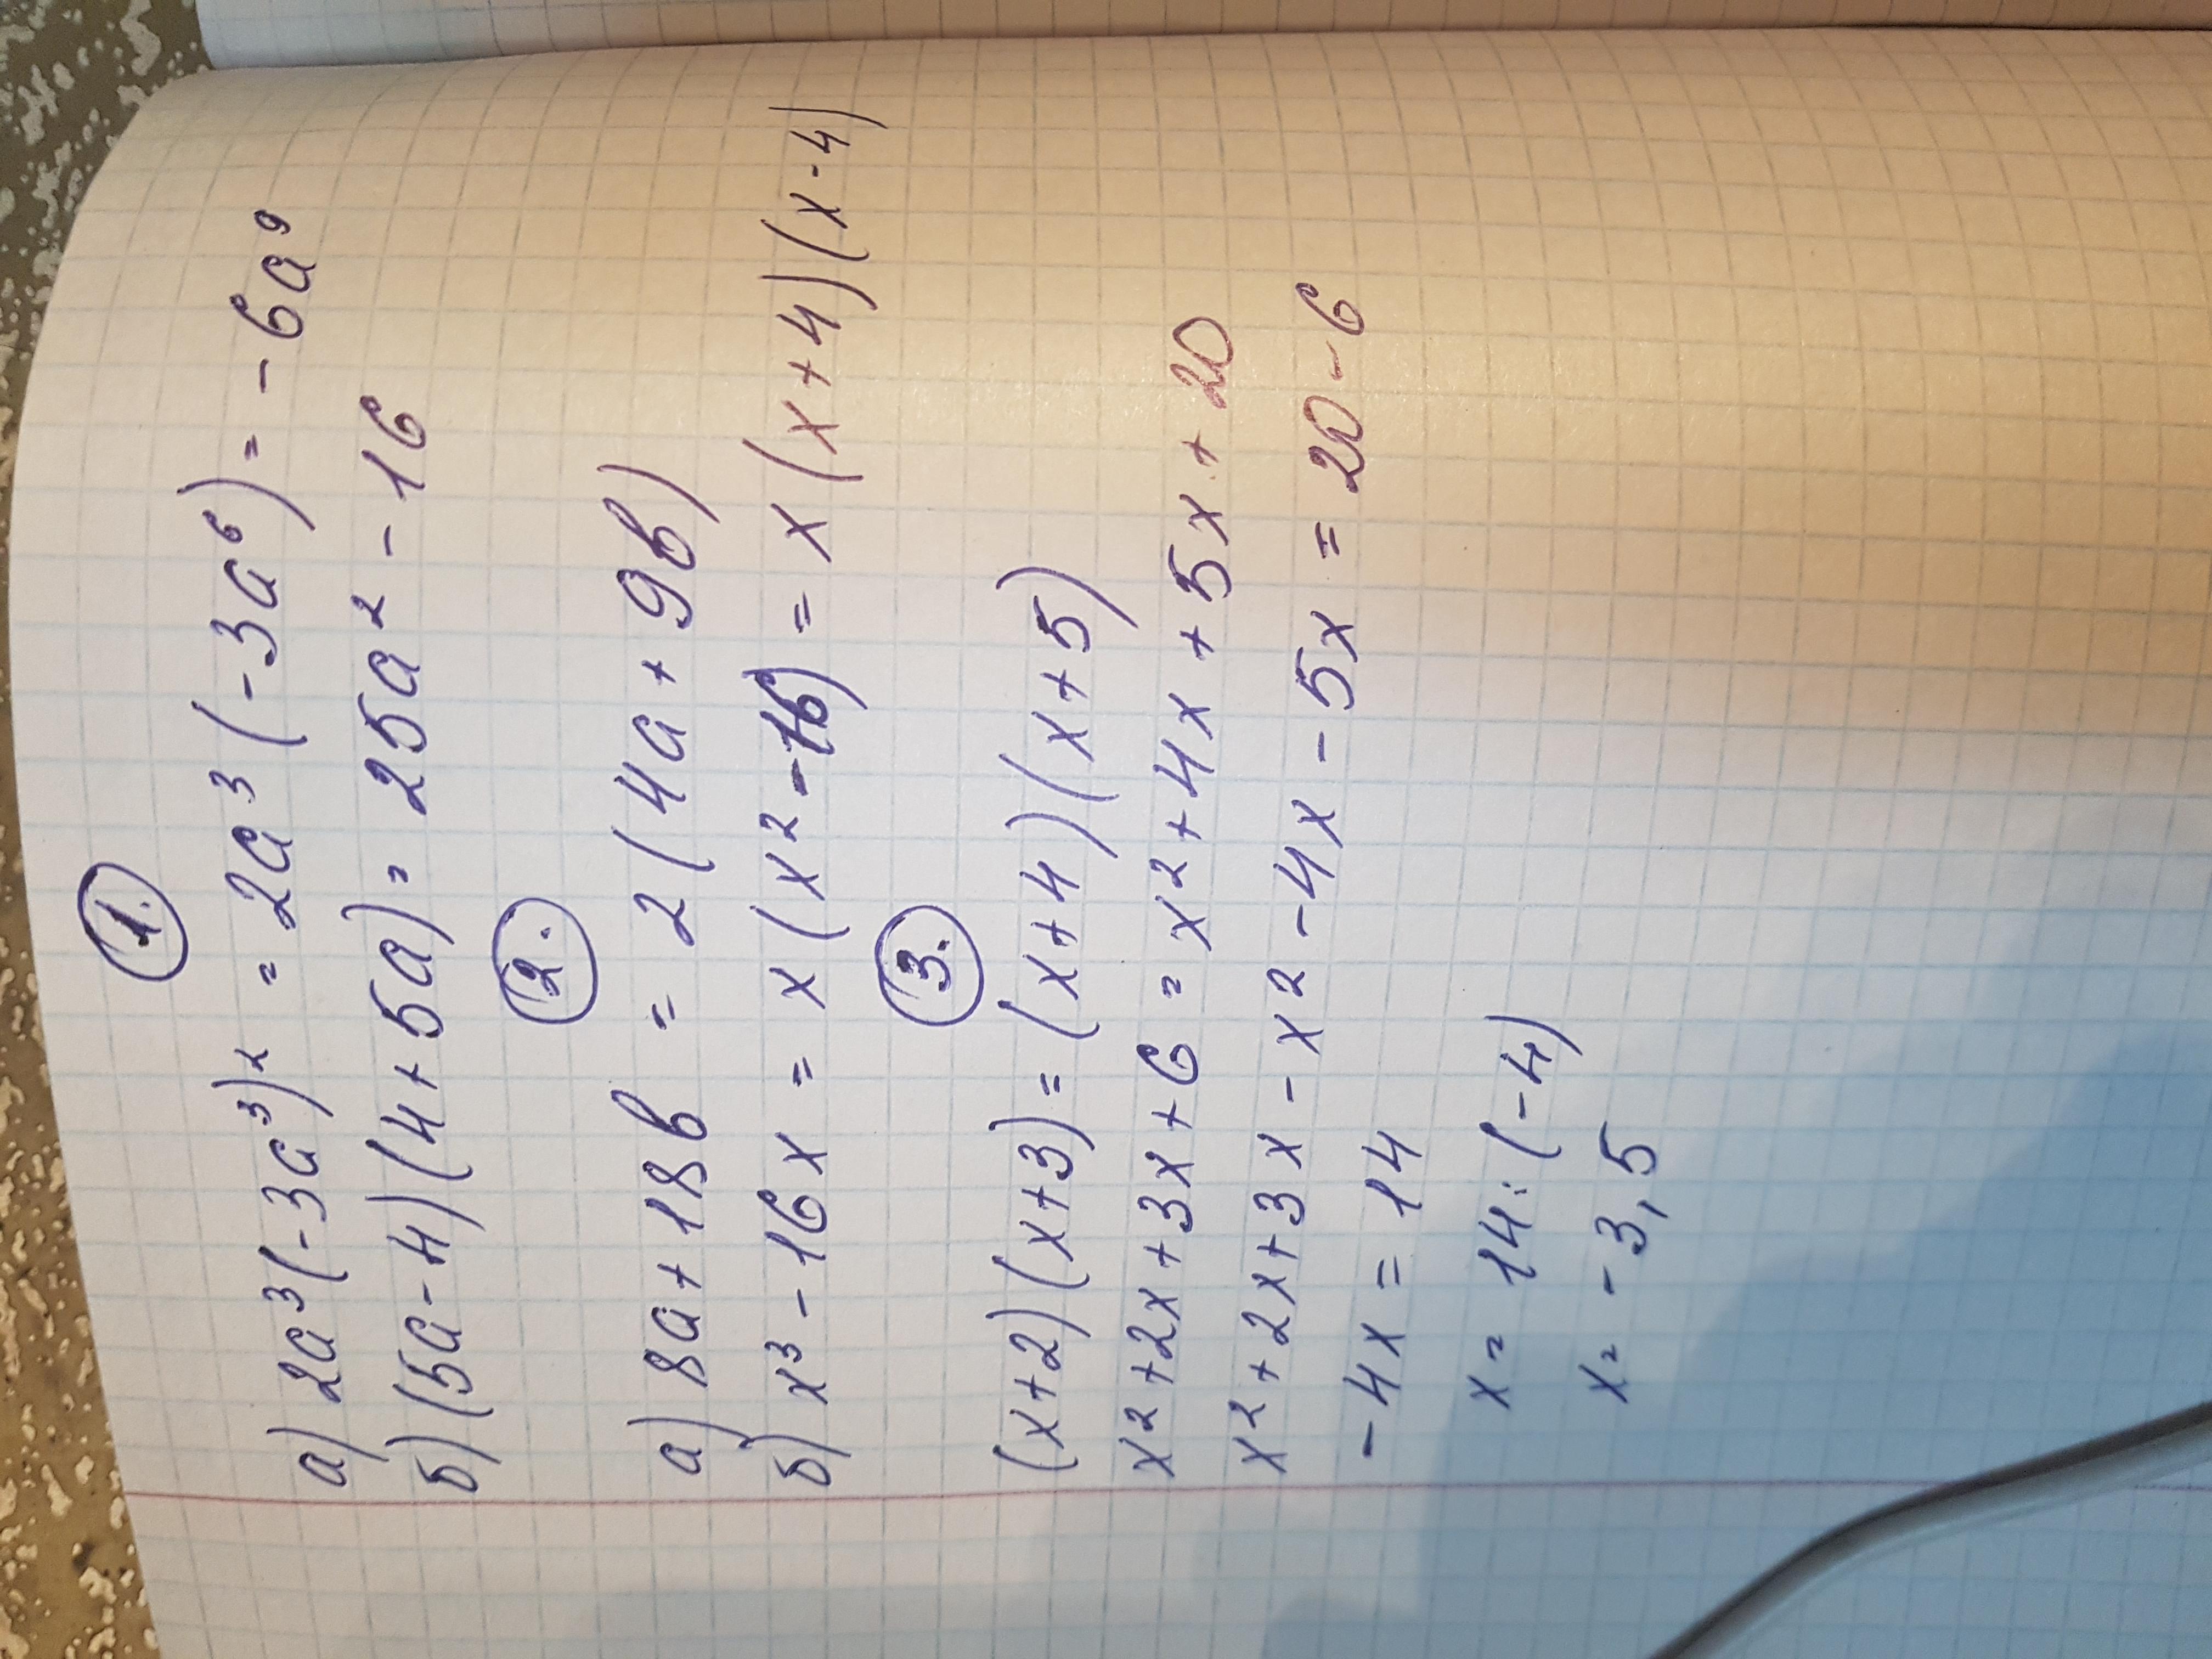 1.
а) 2a³(-3a³)² = 2a³(-3a⁶) = -6a⁹
б) (5a-4)(4+5a) = 25a² - 16
2.
а) 8a + 18b = 2(4a + 9b)
б) x³ - 16x = x(x² - 16) = x(x+4)(x-4)
3.
(x+2)(x+3) = (x+4)(x+5)
x² + 2x + 3x + 6 = x² + 4x + 5x + 20
x² + 2x + 3x - x² - 4x - 5x = 20 - 6
-4x = 14
x = 14 : (-4)
x = -3,5